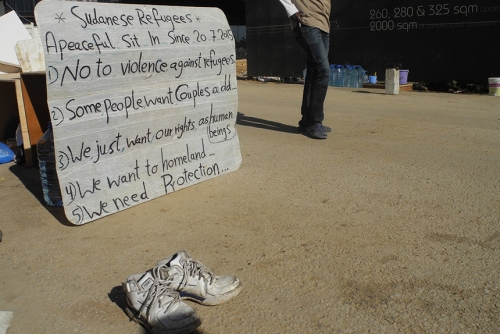 * Sudanese Refugees *
A peaceful Sit In Since 20.7.2015
1) No to violence against refugees
2) Some people want Couples a.dd...
3) We just, want our rights, as human
beings
4) We want to homeland...
5) We need Protection...
260, 280 & 325 sqm
2000 sqm